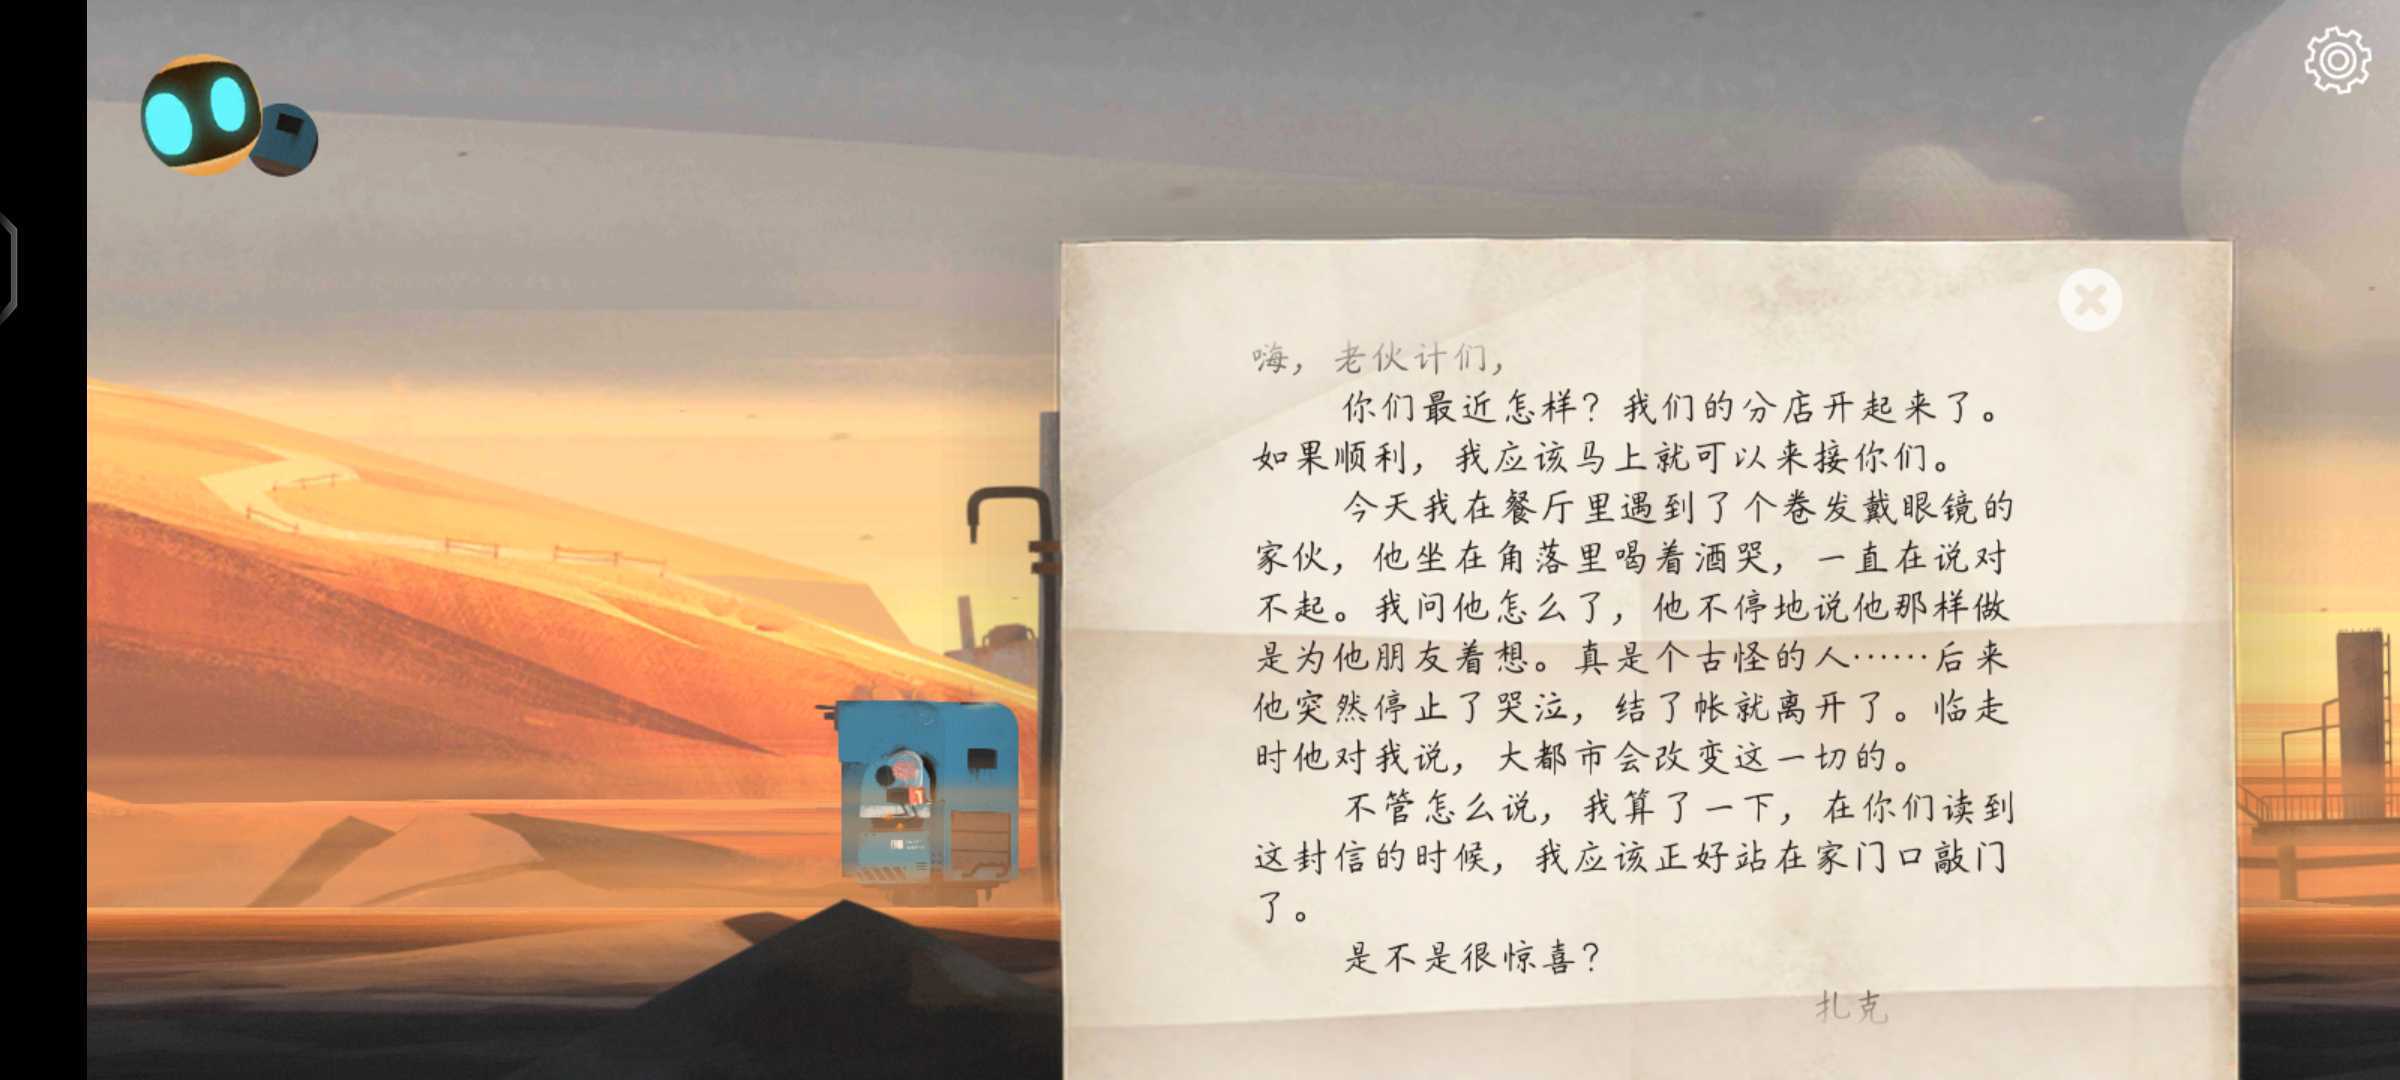 嗨，老伙计们，
你们最近怎样？我们的分店开起来了。
如果顺利，我应该马上就可以来接你们。
今天我在餐厅里遇到了个卷发戴眼镜的
家伙，他坐在角落里喝着酒哭，一直在说对
不起。我问他怎么了，他不停地说他那样做
是为他朋友着想。真是个古怪的人……后来
他突然停止了哭泣，结了帐就离开了。临走
时他对我说，大都市会改变这一切的。
不管怎么说，我算了一下，在你们读到
这封信的时候，我应该正好站在家门口敲门
了。
是不是很惊喜？
扎克